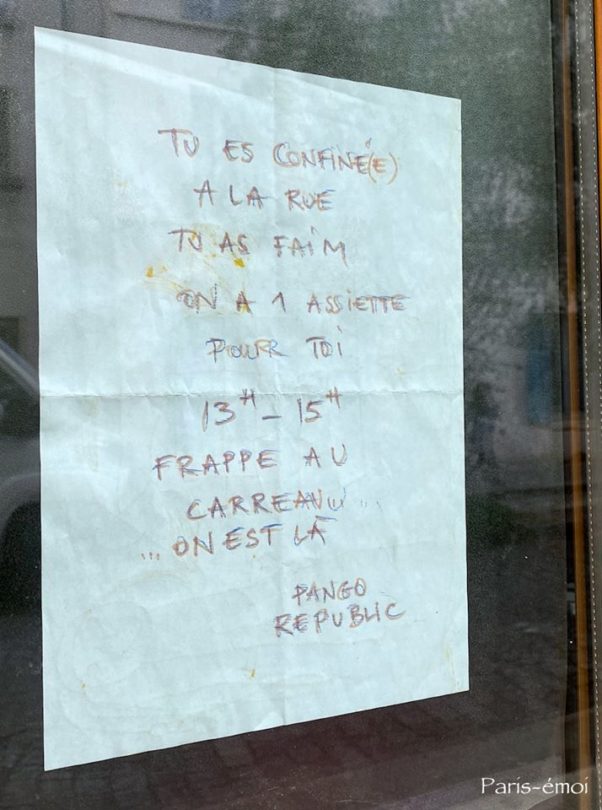 TU ES CONFINÉ(E)
A LA RUE
TU AS FAIM
ON A 1 ASSIETTE
POUR TOI
13H - 15H
FRAPPE AU
CARREAU ...
... ON EST LÀ
PANGO
REPUBLIC
Paris-émoi